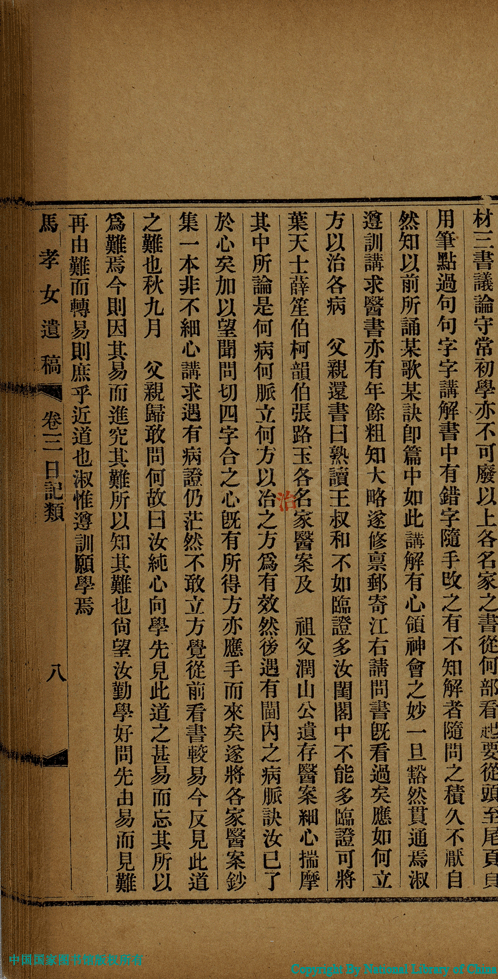 材三書議論守常初學亦不可廢以上各名家之書從何部看起要從頭至尾頁頁
用筆點過句句字字講解書中有錯字隨手改之有不知解者隨問之積久不厭自
然知以前所誦某歌某訣卽篇中如此講解有心領神會之妙一旦豁然貫通焉淑
遵訓講求醫書亦有年餘粗知大略遂修稟郵寄江右請問書旣看過矣應如何立
方以治各病　父親還書曰熟讀王叔和不如臨證多汝閨閣中不能多臨證可將
葉天士薛笙伯柯韻伯張路玉各名家醫案及　祖父潤山公遺存醫案細心揣摩
其中所論是何病何脈立何方以冶之方爲有效然後遇有閫內之病脈訣汝已了
治
於心矣加以望聞問切四字合之心旣有所得方亦應手而來矣遂將各家醫案鈔
集一本非不細心講求遇有病證仍茫然不敢立方覺從前看書較易今反見此道
之難也秋九月　父親歸敢問何故曰汝純心向學先見此道之甚易而忘其所以
爲難焉今則因其易而進究其難所以知其難也尙望汝勤學好問先由易而見難
再由難而轉易則庶乎近道也淑惟遵訓願學焉
馬孝女遺稿　卷三日記類　八
中国国家图书馆版权所有
Copyright By National Library of China